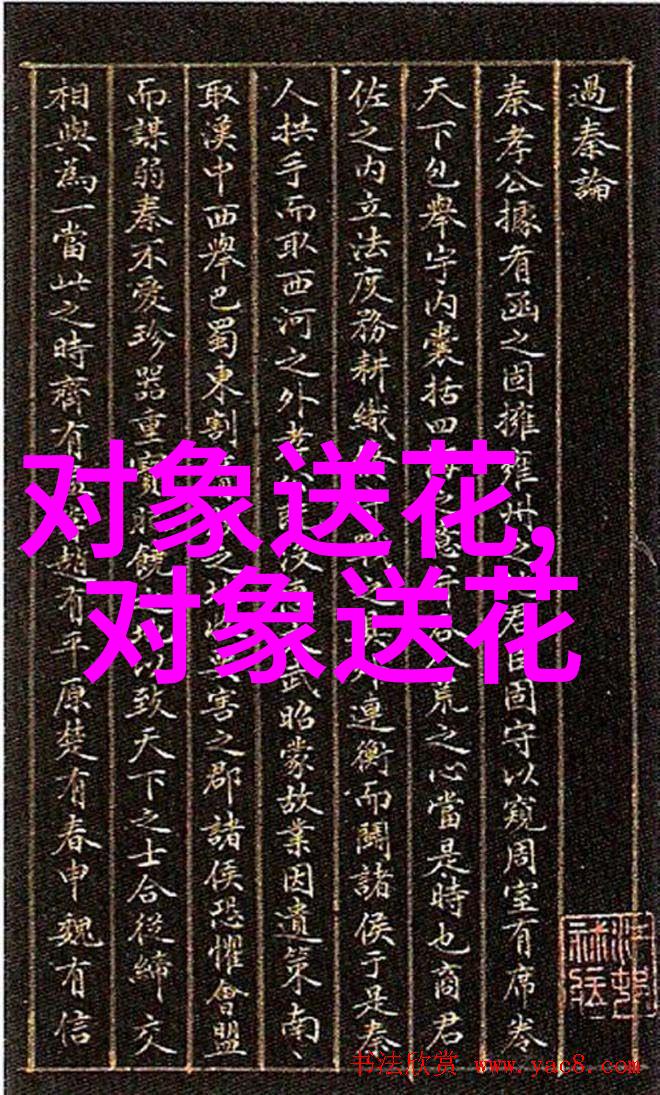 過秦論
秦孝公據有函之固擁雍州之君臣固守以窺周室有席卷
天下包舉宇内囊括四海之意并吞八荒之心當是時也商君
佐之内立法度務耕織守戰之具外連衡而鬭諸侯于是秦
人拱手而取西河之外孝公既沒惠文武昭蒙故業因遺策南〻
取漢中西舉巴蜀東割之地收要害之郡諸侯恐懼會盟
而謀弱秦不愛珍器重寶肥饒之地以致天下之士合從締交
相與為一當此之時齊有孟嘗趙有平原楚有春申魏有信
对象送花,
对象送花
书法欣赏 www.yac8.com